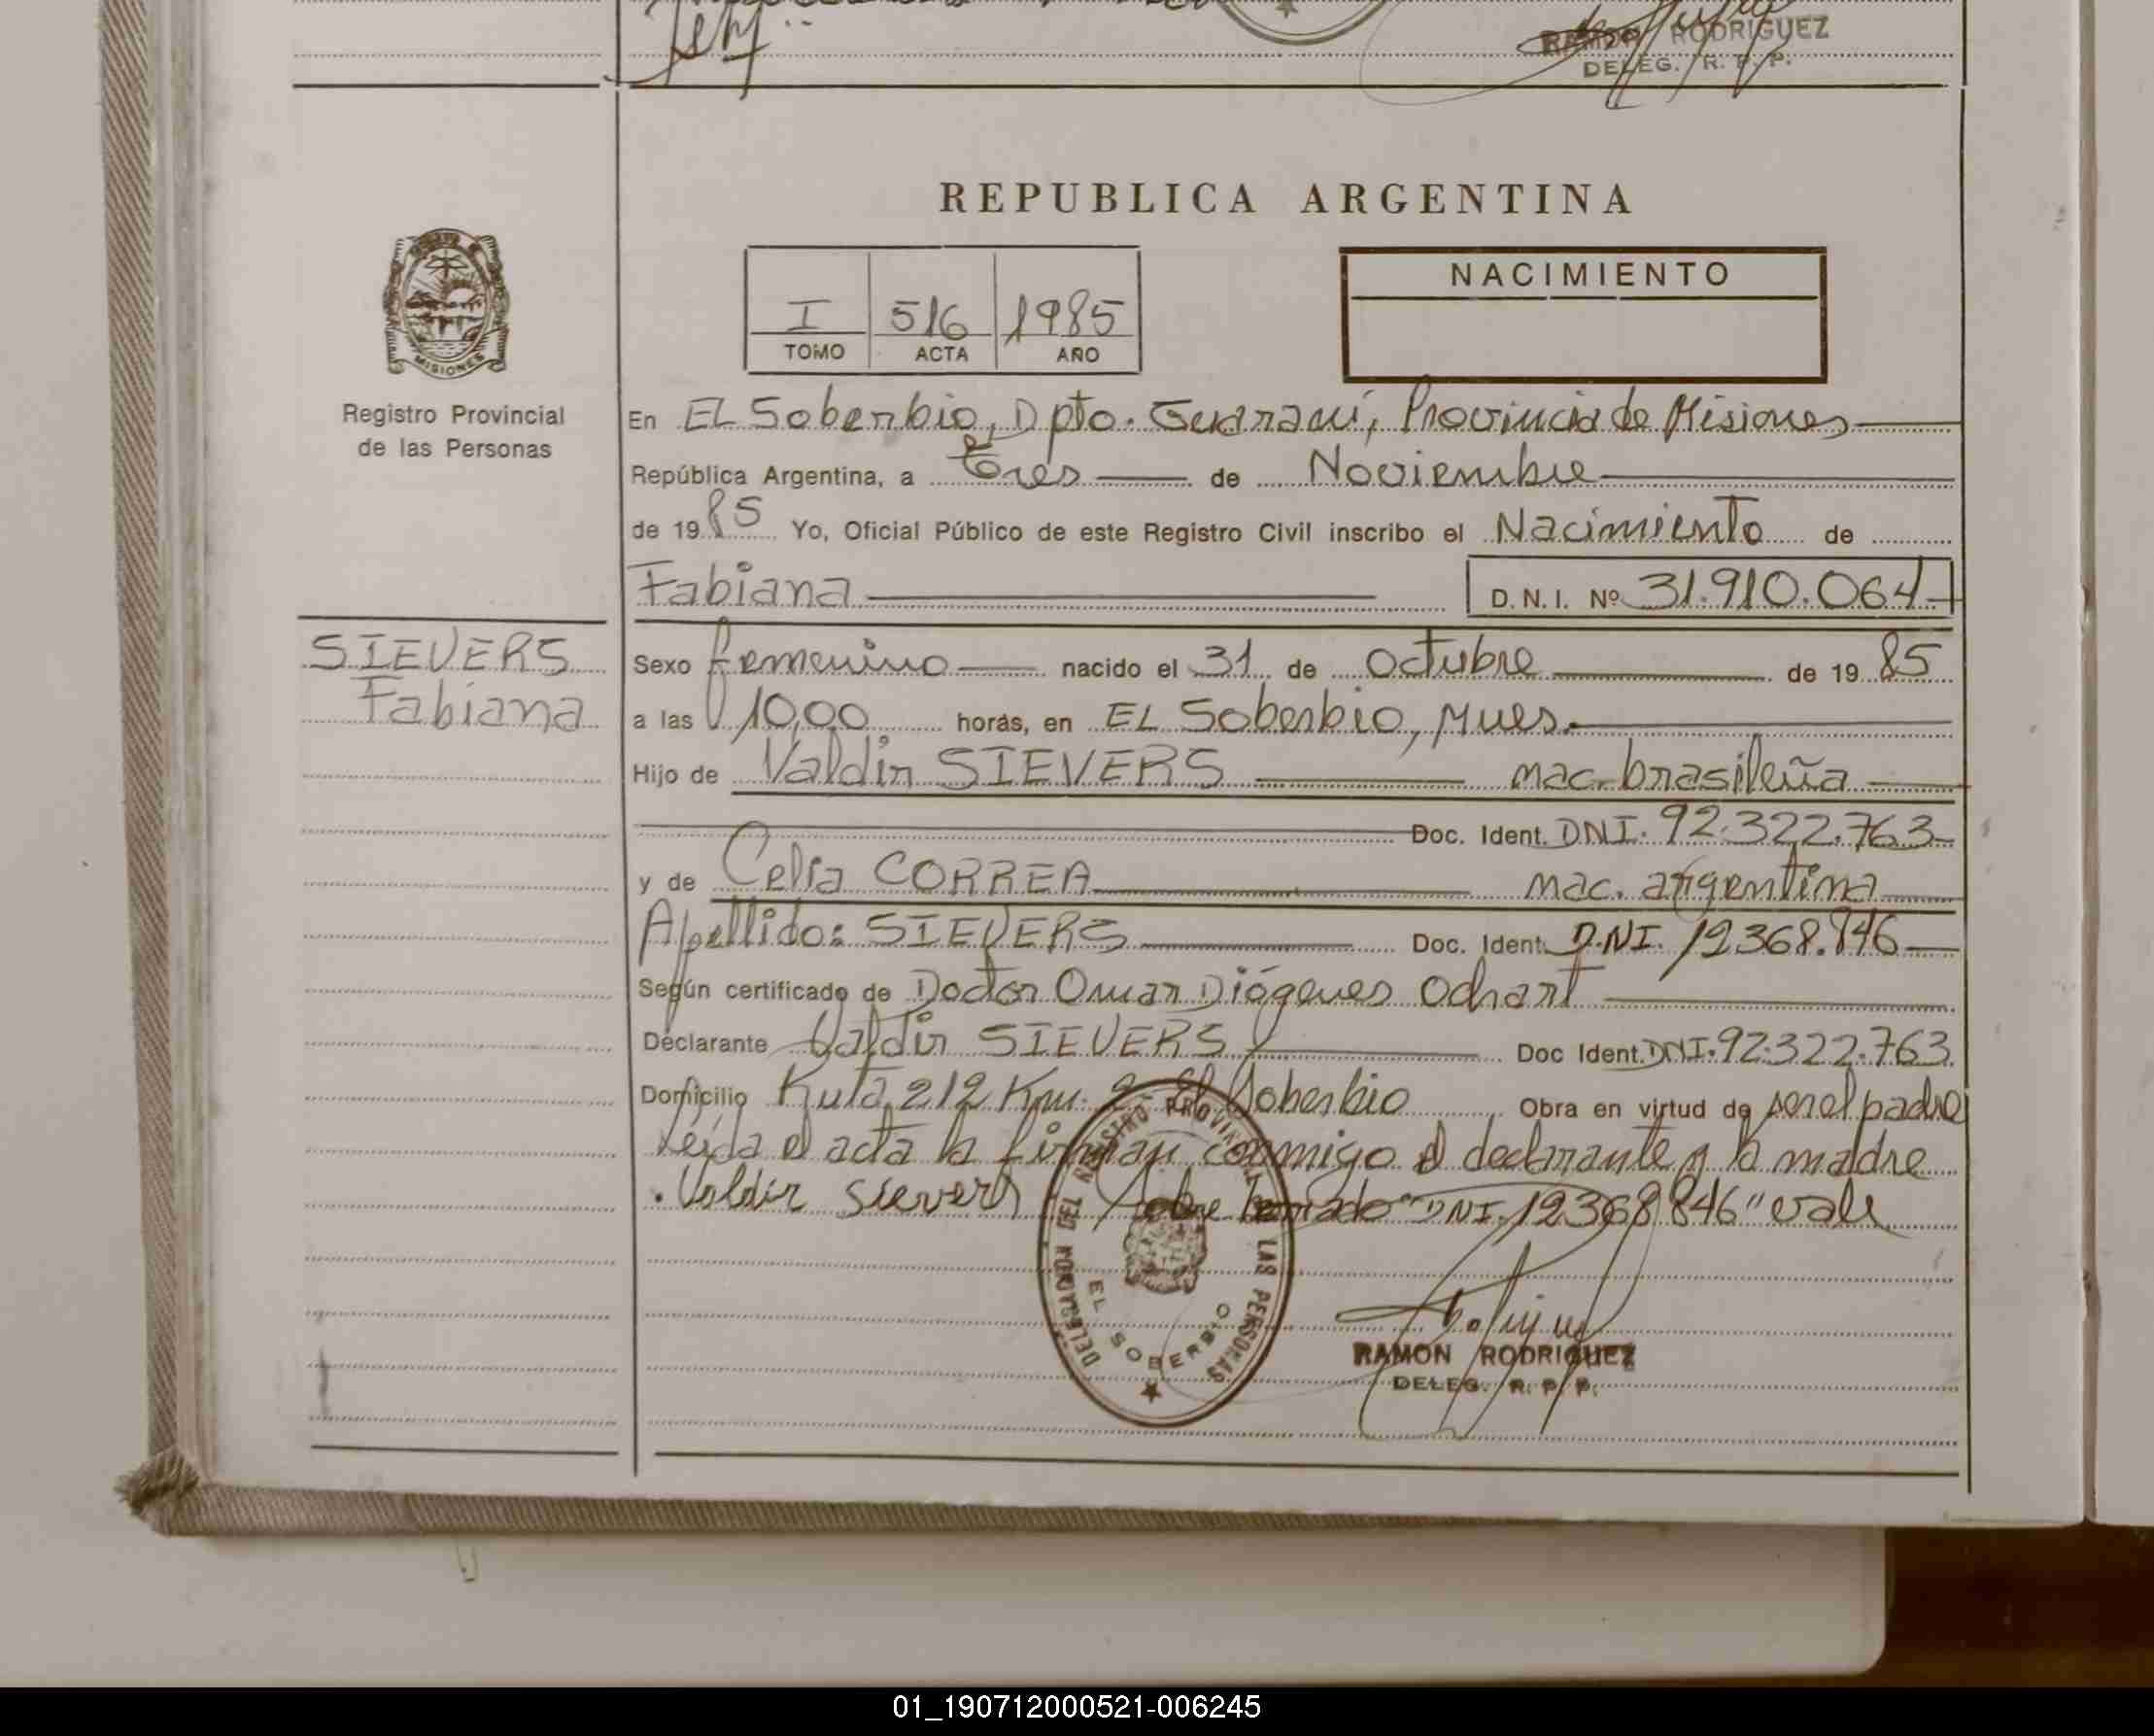 RAMON RODRIGUEZ
DELEG. R. P. P.
REPUBLICA ARGENTINA
MISIONES
Registro Provincial
de las Personas
I 516 1985
TOMO ACTA AÑO
NACIMIENTO
En EL Soberbio, Dpto. Guaraní, Provincia de Misiones
República Argentina, a tres de Noviembre
de 1985 Yo, Oficial Público de este Registro Civil inscribo el Nacimiento de
Fabiana D.N.I. Nº 31.910.064
SIEVERS
Fabiana
Sexo femenino nacido el 31 de Octubre de 1985
a las 10,00 horas, en EL Soberbio, Mnes.
Hijo de Valdir SIEVERS nac. brasileña
Doc. Ident. DNI. 92.322.763
y de Celia CORREA nac. argentina
Apellido: SIEVERS Doc. Ident. D.NI. 12368.846
Según certificado de Doctor Omar Diógenes Odhart
Declarante Valdir SIEVERS Doc Ident. DNI. 92.322.763
Domicilio Ruta 212 Km. 2 El Soberbio Obra en virtud de ser el padre
Leída el acta la firman conmigo el declarante y la madre
. Valdir Sievers Sobre borrado "DNI. 12368.846" vale
DELEGACION DEL REGISTRO PROVINCIAL DE LAS PERSONAS
EL SOBERBIO
RAMON RODRIGUEZ
DELEG. R. P. P.
01_190712000521-006245